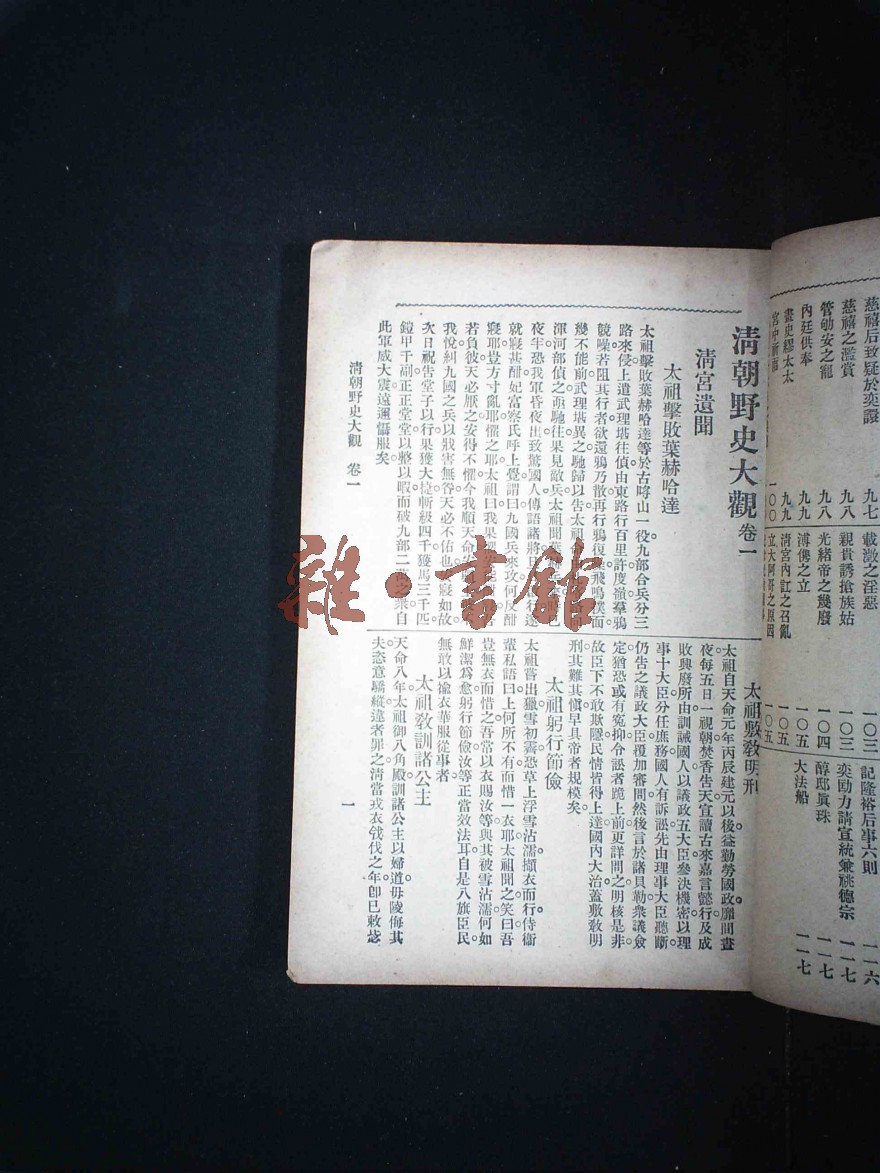 慈禧后致疑於奕譞 九七
慈禧之濫賞 九八
管劬安之寵 九八
內廷供奉 九九
畫史繆太太 九九
一〇〇
載澂之淫惡 一〇三
親貴誘搶族姑 一〇三
光緒帝之幾廢 一〇四
溥儁之立 一〇五
清宮內訌之召亂 一〇五
立大阿哥之原因
記隆裕后事六則 一一六
奕劻力請宣統兼祧德宗 一一七
醇邸眞珠 一一七
大法船 一一七
清朝野史大觀 卷一
清宮遺聞
太祖擊敗葉赫哈達
太祖擊敗葉赫哈達等於古哷山一役九部合兵分三
路來侵上遣武理堪往偵由東路行百里許度嶺羣鴉
競噪若阻其行者欲還鴉乃散再行鴉復飛鳴撲面
幾不能前武理堪異之馳歸以告太祖
渾河部偵之亟馳往果見敵兵太祖聞葉
夜半恐我軍昏夜出致驚國人傳語諸將旦行遂
就寢甚酣妃富察氏呼上覺謂曰九國兵來攻何反酣
寢耶豈方寸亂耶懼之耶太祖曰我果
若負彼天必厭之安得不懼今我順天命安
我悅糾九國之兵以戕害無咎天必不佑也寢如故
次日祝告堂子以行果獲大捷斬級四千獲馬三千匹
鎧甲千副正正堂堂以整以暇而破九部二之衆自
此軍威大震遠邇懾服矣
太祖敷敎明刑
太祖自天命元年丙辰建元以後益勤勞國政靡間晝
夜每五日一視朝焚香告天宣讀古來嘉言懿行及成
敗興廢所由訓誡國人以議政五大臣參決機密以理
事十大臣分任庶務國人有訴訟先由理事大臣聽斷
仍告之議政大臣覆加審問然後言於諸貝勒衆議僉
定猶恐或有寃抑令訟者跪上前更詳問之明核是非
故臣下不敢欺隱民情皆得上達國內大治蓋敷敎明
刑其難其愼早具帝者規模矣
太祖躬行節儉
太祖嘗出獵雪初霽恐草上浮雪沾濡擷衣而行侍衞
輩私語曰上何所不有而惜一衣耶太祖聞之笑曰吾
豈無衣而惜之吾常以衣賜汝等與其被雪沾濡何如
鮮潔爲愈躬行節儉汝等正當效法耳自是八旗臣民
無敢以揄衣華服從事者
太祖敎訓諸公主
天命八年太祖御八角殿訓諸公主以婦道毋陵侮其
夫恣意驕縱違者罪之清當戎衣伐之年卽已敕
清朝野史大觀 卷一
一
雜·書館